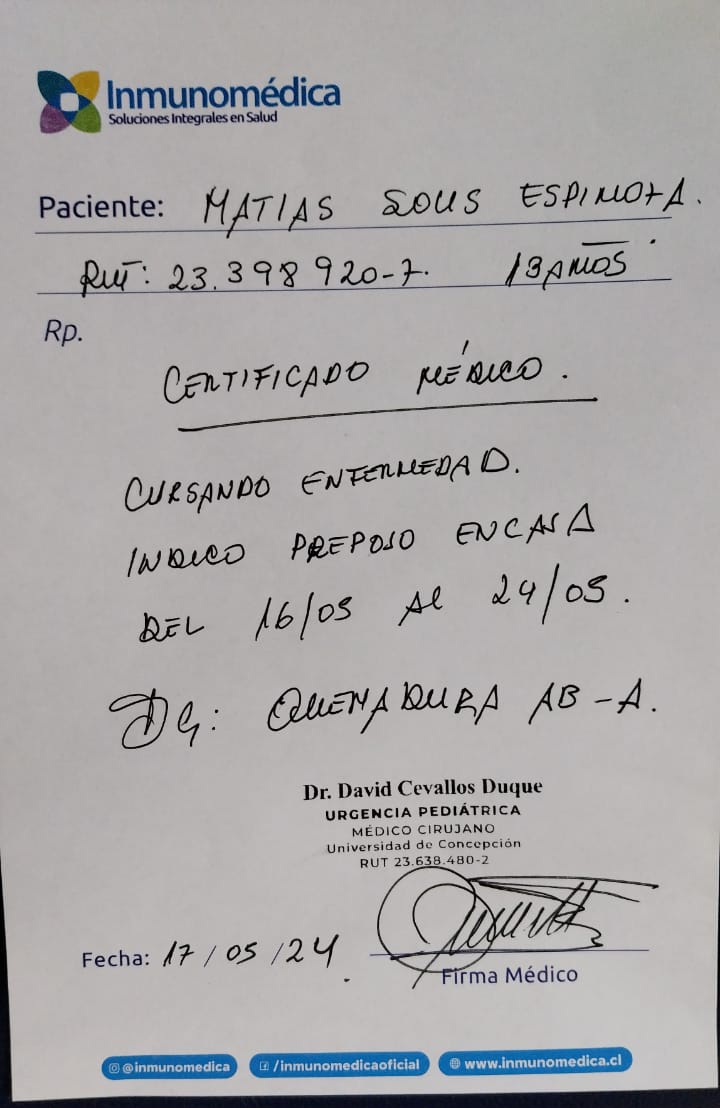 Inmunomédica
Soluciones Integrales en Salud
Paciente: MATIAS SOUS ESPINOZA.
RUT: 23.398920-7. 13 AÑOS
Rp.
CERTIFICADO MÉDICO.
CURSANDO ENFERMEDAD.
INDICO REPOSO EN CASA
DEL 16/05 Al 24/05.
DG: QUEMADURA AB-A.
Dr. David Cevallos Duque
URGENCIA PEDIÁTRICA
MÉDICO CIRUJANO
Universidad de Concepción
RUT 23.638.480-2
Fecha: 17/05/24
Firma Médico
@inmunomedica /inmunomedicaoficial www.inmunomedica.cl